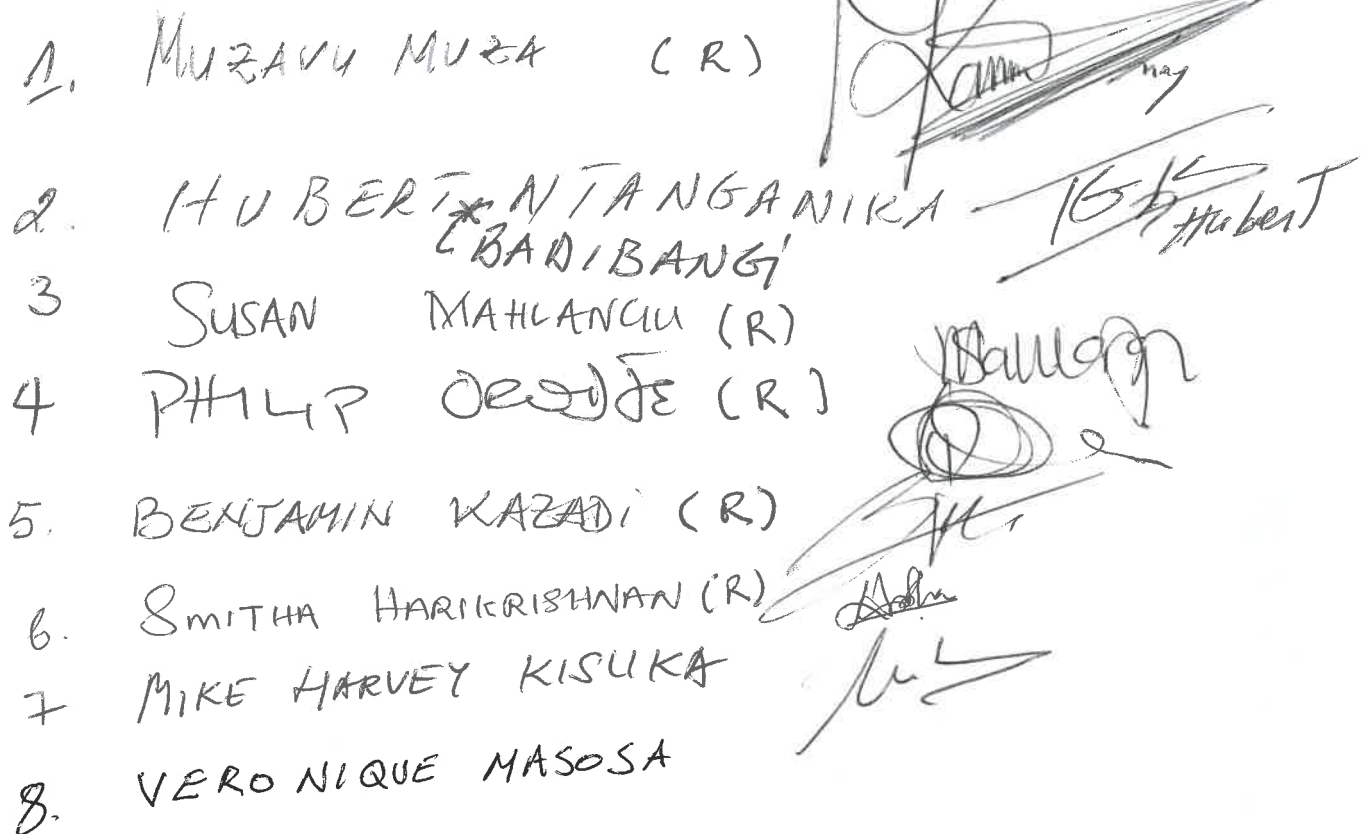 1. MUZAVU MUZA (R)
2. HUBERT * NTANGANIKA Hubert
(BADIBANGI
3 SUSAN MAHLANGU (R)
4 PHILIP (R)
5. BENJAMIN KAZADi (R)
6. SMITHA HARIKRISHNAN (R)
7 MIKE HARVEY KISUKA
8. VERONIQUE MASOSA